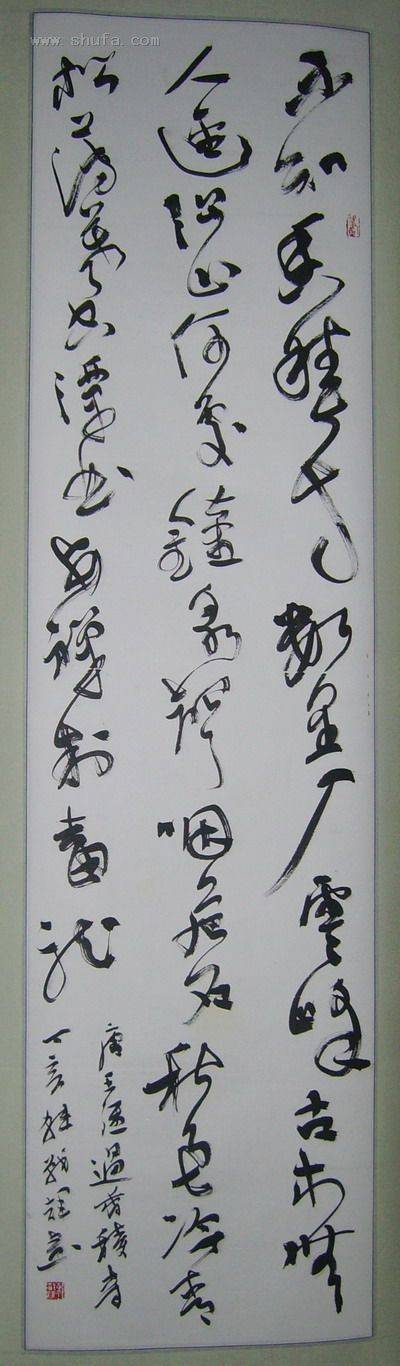 www.shufa.com
不知香積寺數里入雲峰古木無
人逕深山何處鐘泉聲咽危石秋色冷青
松薄暮空潭曲安禪制毒龍
唐王維過香積寺
丁亥